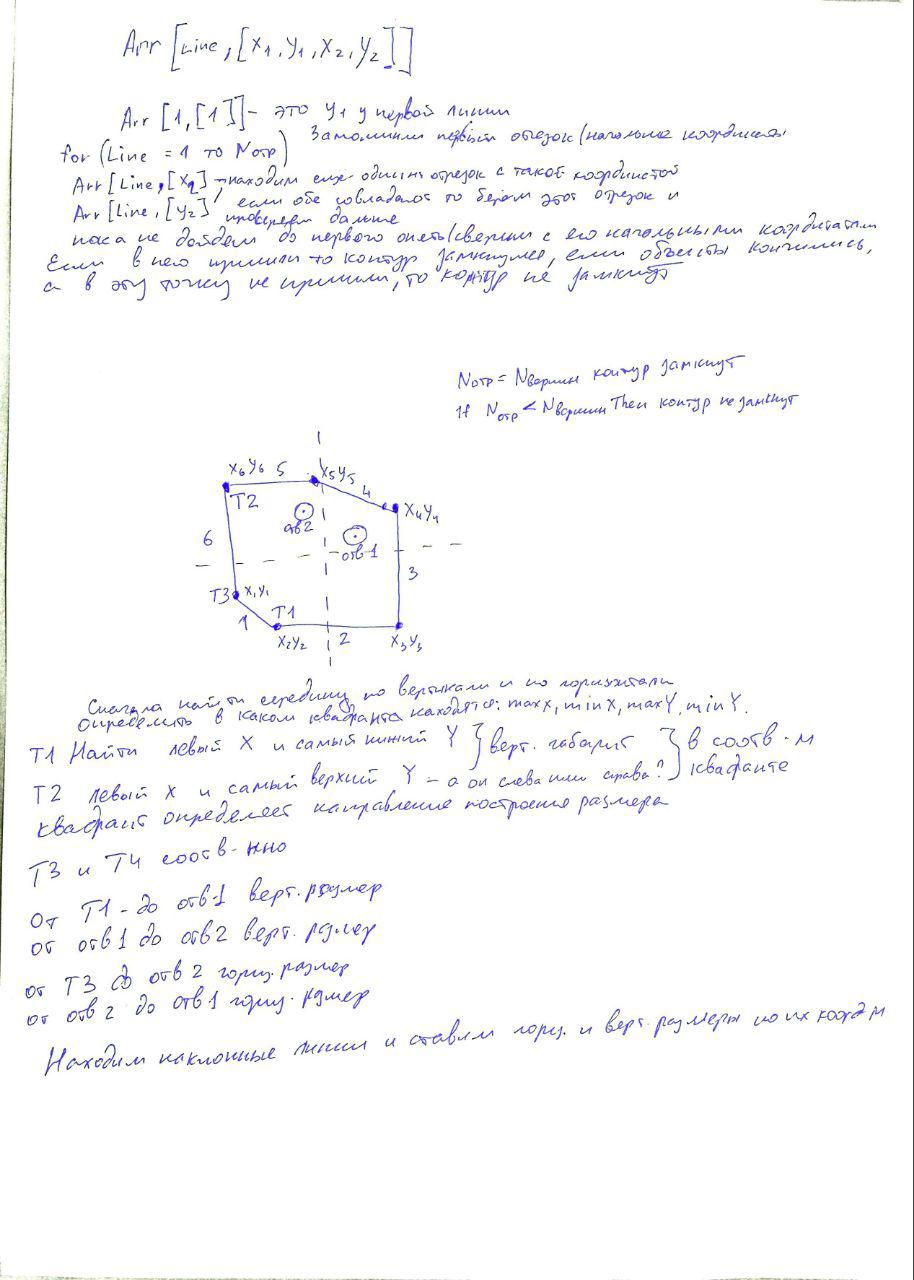 Arr [Line, [X1, Y1, X2, Y2]]
Arr [1, [1]] - это Y1 у первой линии
for (Line = 1 to Nотр) Запомнили первый отрезок (начальные координаты
Arr [Line, [X2] - находим еще один отрезок с такой координатой
Arr [Line, [Y2] если обе совпадают то берем этот отрезок и
проверяем дальше
пока не дойдем до первого опять/сверим с его начальными координатами
Если в него пришли то контур замкнулся, если объекты кончились,
а в эту точку не пришли, то контур не замкнут
Nотр = Nвершин контур замкнут
If Nотр < Nвершин Then контур не замкнут
X6Y6 5 X5Y5
4
T2
X4Y4
отв2
6
отв1
3
T3 X1Y1
1 T1
X2Y2 2 X3Y3
Сначала найти середину по вертикали и по горизонтали
Определить в каком квадранте находятся: maxX, minX, maxY, minY.
T1 Найти левый X и самый нижний Y } верт. габарит } в соотв-м
T2 левый X и самый верхний Y - а он слева или справа? } квадранте
Квадрант определяет направление построения размера
T3 и T4 соотв-нно
От T1 - до отв1 верт. размер
от отв1 до отв2 верт. размер
от T3 до отв2 гориз. размер
от отв2 до отв1 гориз. размер
Находим наклонные линии и ставим гориз. и верт. размеры по их коорд-м